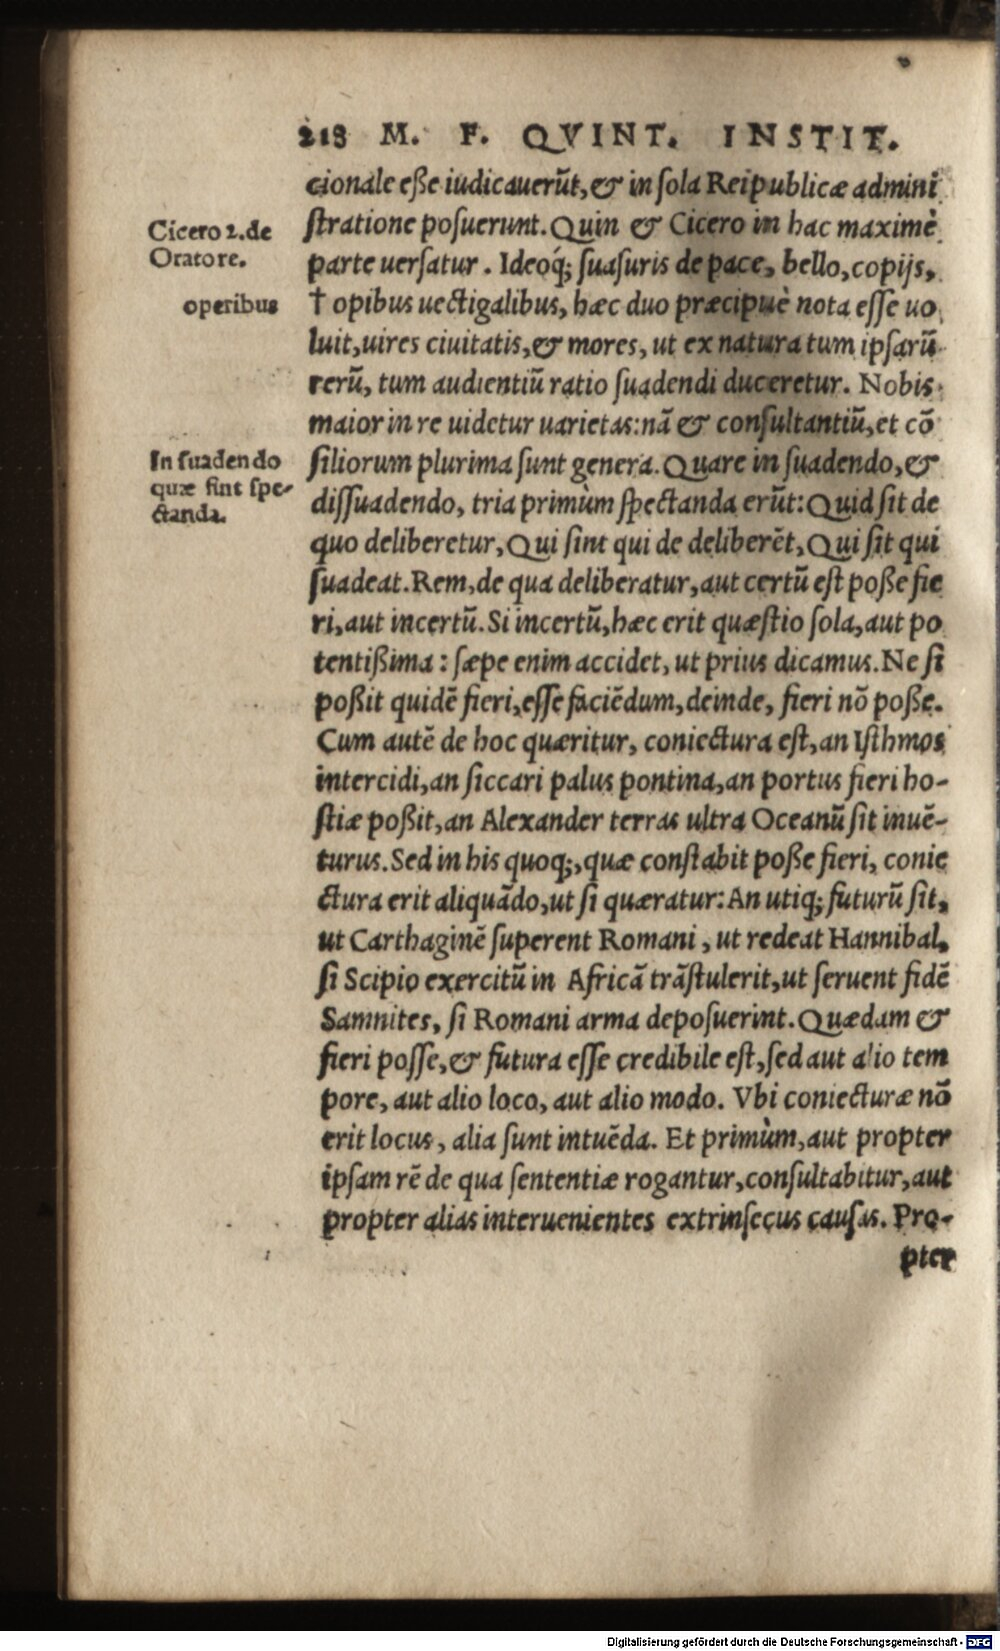 218 M. F. QVINT. INSTIT.
cionale eße iudicauerũt, & in sola Reipublicæ admini
stratione posuerunt. Quin & Cicero in hac maximè
Cicero 2. de
Oratore.
parte uersatur. Ideoq́; suasuris de pace, bello, copijs,
operibus
† opibus uectigalibus, hæc duo præcipuè nota esse uo
luit, uires ciuitatis, & mores, ut ex natura tum ipsarũ
rerũ, tum audientiũ ratio suadendi duceretur. Nobis
maior in re uidetur uarietas: nã & consultantiũ, et cõ
In suadendo
quæ sint spe-
ctanda.
siliorum plurima sunt genera. Quare in suadendo, &
dissuadendo, tria primùm spectanda erũt: Quid sit de
quo deliberetur, Qui sint qui de deliberẽt, Qui sit qui
suadeat. Rem, de qua deliberatur, aut certũ est poße fie
ri, aut incertũ. Si incertũ, hæc erit quæstio sola, aut po
tentißima: sæpe enim accidet, ut prius dicamus. Ne si
poßit quidẽ fieri, esse faciẽdum, deinde, fieri nõ poße.
Cum autẽ de hoc quæritur, coniectura est, an Isthmos
intercidi, an siccari palus pontina, an portus fieri ho-
stiæ poßit, an Alexander terras ultra Oceanũ sit inuẽ-
turus. Sed in his quoq;, quæ constabit poße fieri, conie
ctura erit aliquãdo, ut si quæratur: An utiq; futurũ sit,
ut Carthaginẽ superent Romani, ut redeat Hannibal,
si Scipio exercitũ in Africã trãstulerit, ut seruent fidẽ
Samnites, si Romani arma deposuerint. Quædam &
fieri posse, & futura esse credibile est, sed aut alio tem
pore, aut alio loco, aut alio modo. Vbi coniecturæ nõ
erit locus, alia sunt intuẽda. Et primùm, aut propter
ipsam rẽ de qua sententiæ rogantur, consultabitur, aut
propter alias interuenientes extrinsecus causas. Pro-
pter
Digitalisierung gefördert durch die Deutsche Forschungsgemeinschaft - DFG